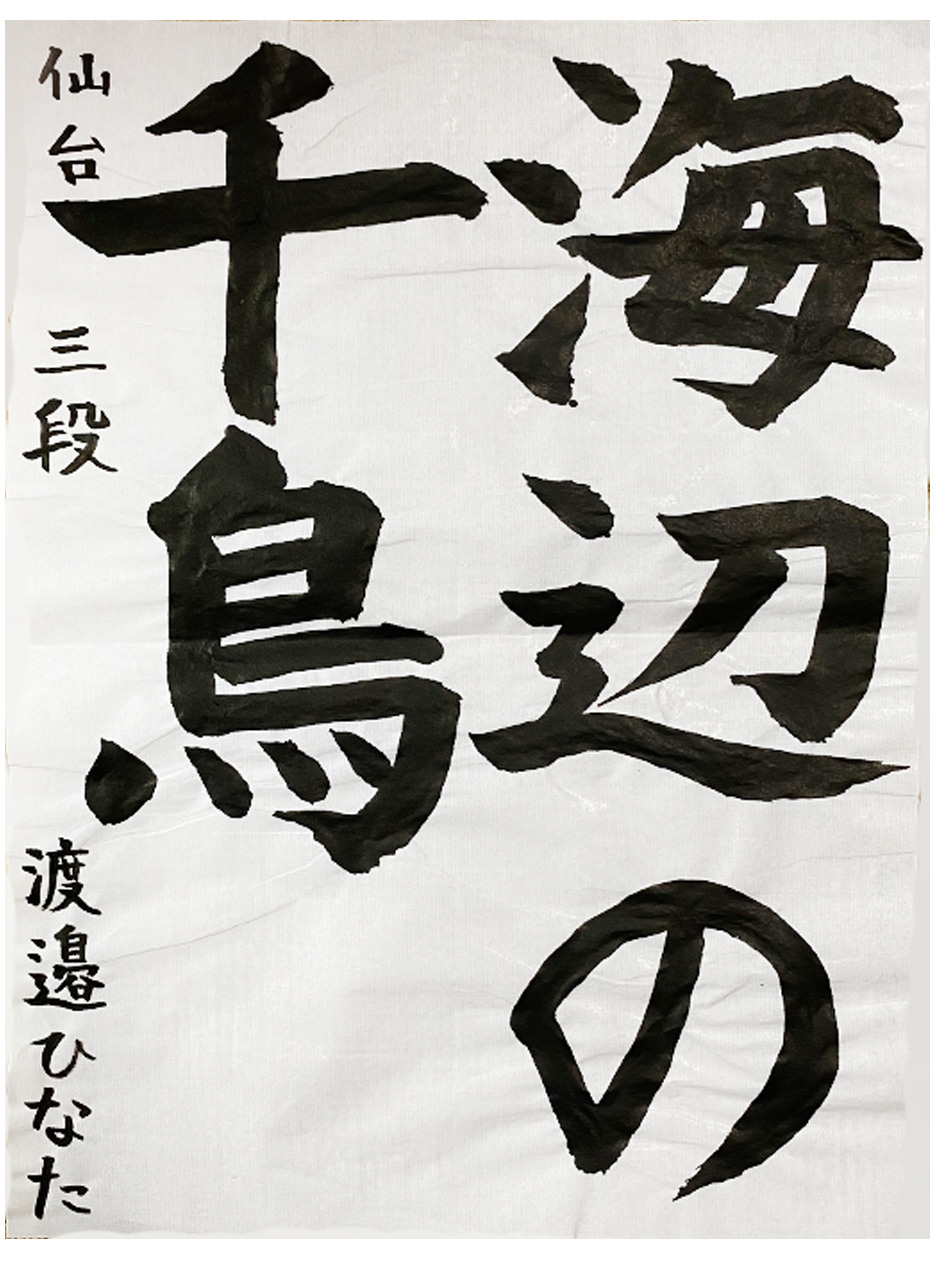 海辺の
千鳥
仙台 三段 渡邉ひなた